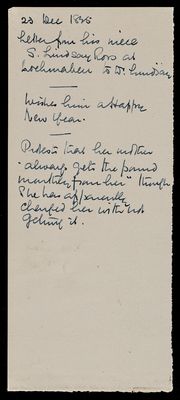 23 Dec 1838
Letter from his niece
S. Lindsay Ross at
Lochmaben to W. Lindsay
Wishes him a Happy
New Year.
Protests that her mother
"always gets the pound
monthly from her" though
she has apparently
charged her with not
getting it.